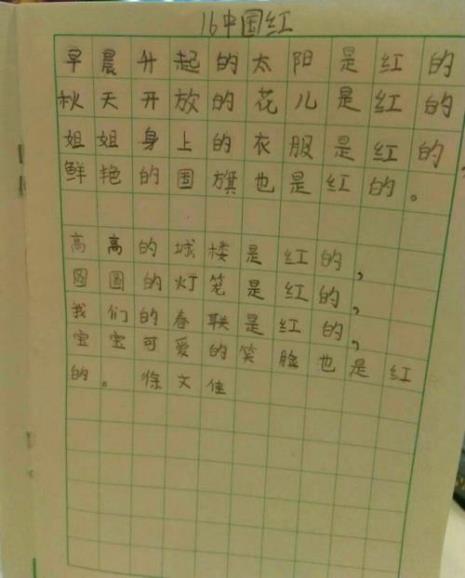 16中国红
早晨升起的太阳是红的
秋天开放的花儿是红的
姐姐身上的衣服是红的，
鲜艳的国旗也是红的。
高高的城楼是红的，
圆圆的灯笼是红的，
我们的春联是红的，
宝宝可爱的笑脸也是红
的。徐文佳